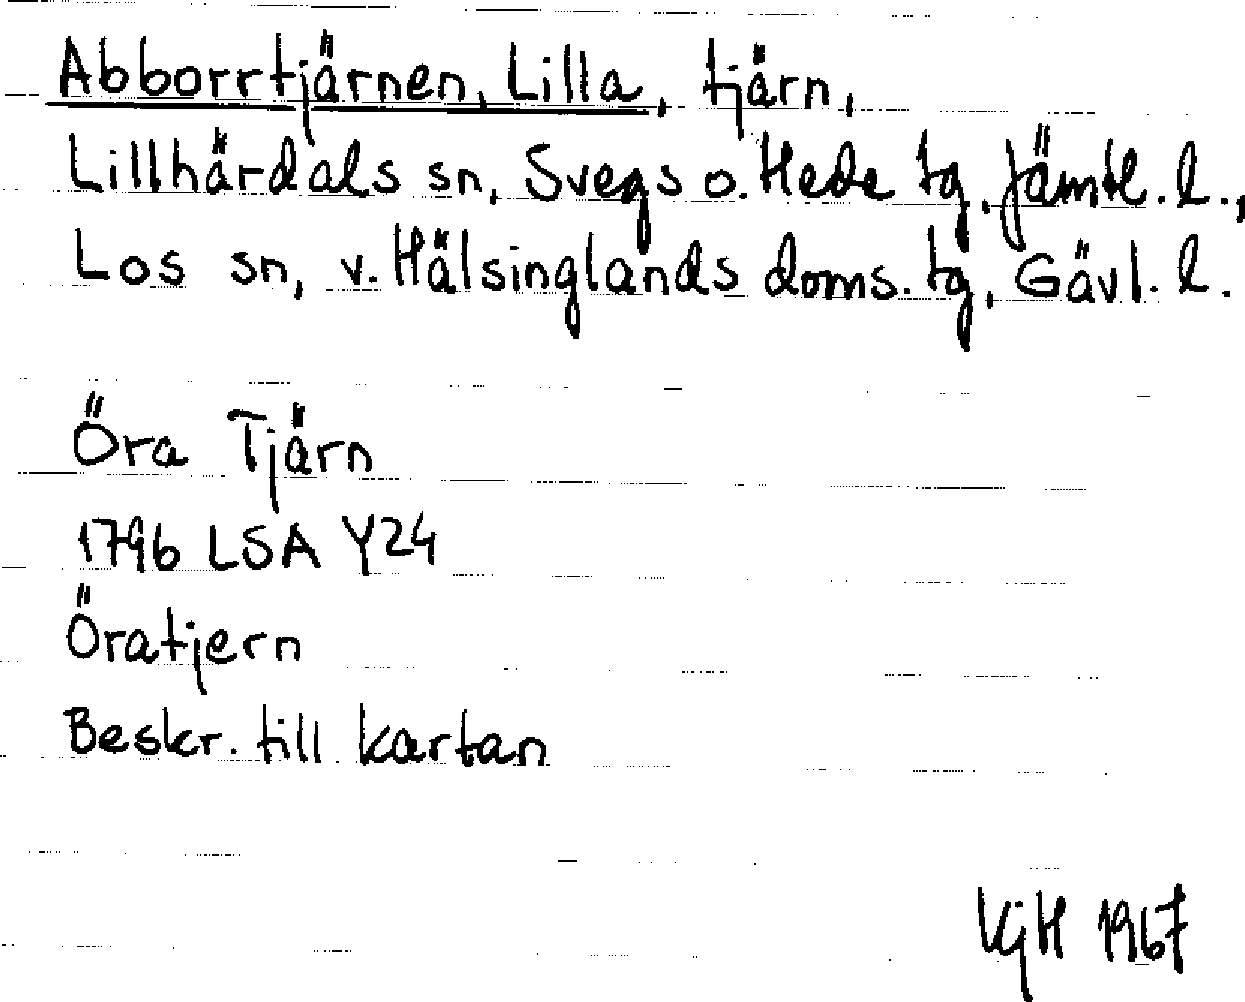 Abborrtjärnen, Lilla, tjärn,
Lillhärdals sn, Svegs o. Hede tg, Jämtl. l.,
Los sn, v. Hälsinglands doms. tg, Gävl. l.
Öra Tjärn
1796 LSA Y24
Öratjern
Beskr. till kartan
VjH 1967